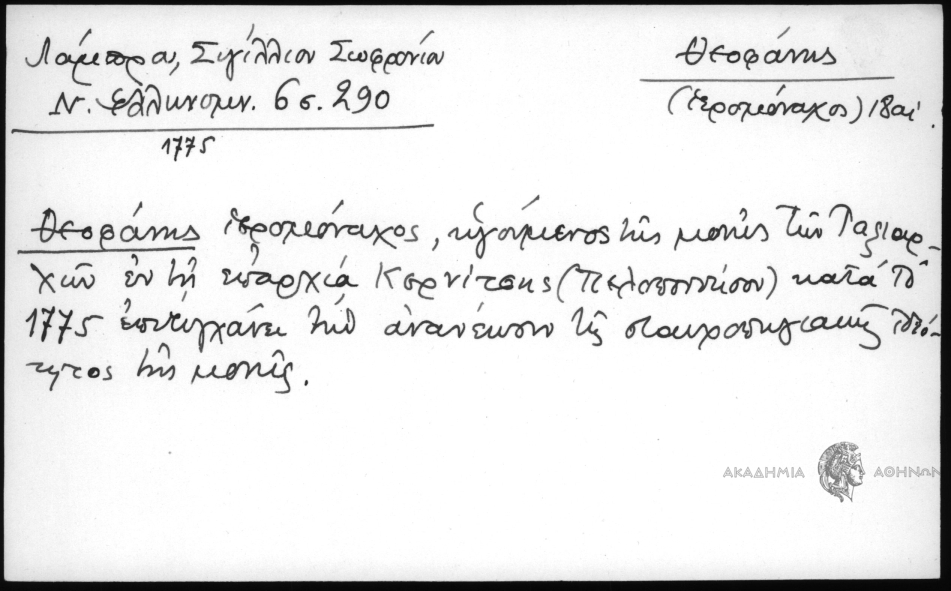 Λάμπρου, Σιγίλλιον Σωφρονίου
Ν. Ἑλληνομν. 6 σ. 290
1775
Θεοφάνης
(ἱερομόναχος) 18 αἰ.
Θεοφάνης ἱερομόναχος, ἡγούμενος τῆς μονῆς τῶν Ταξιαρ-
χῶν ἐν τῇ ἐπαρχίᾳ Κερνίτσης (Πελοποννήσου) κατὰ τὸ
1775 ἐπιτυγχάνει τὴν ἀνανέωσιν τῆς σταυροπηγιακῆς ἰδιό-
τητος τῆς μονῆς.
ΑΚΑΔΗΜΙΑ ΑΘΗΝΩΝ